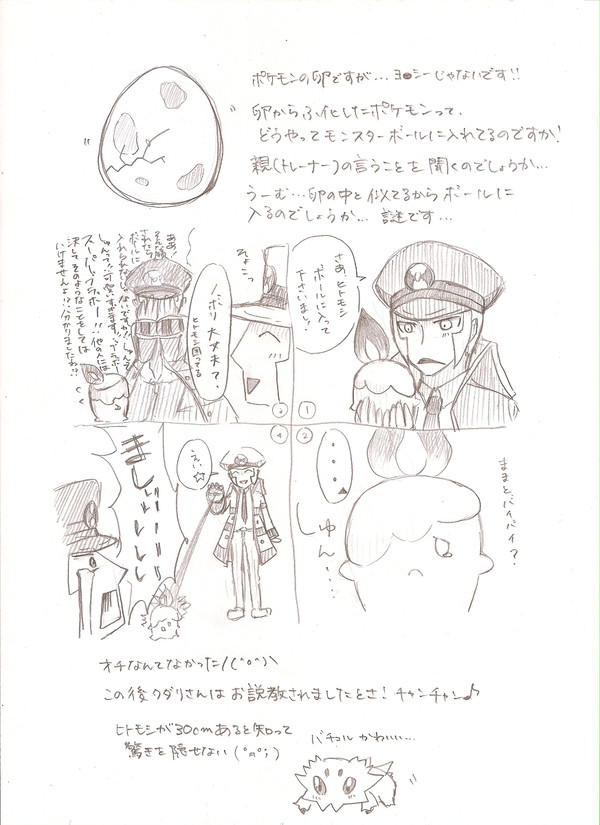 ポケモンの卵ですが…ヨ●シーじゃないです!!
卵からふ化したポケモンって、
どうやってモンスターボールに入れてるのですか!
親(トレーナー)の言うことを聞くのでしょうか…
うーむ…卵の中と似てるからボールに
入るのでしょうか… 謎です…
①
さあ、ヒトモシ
ボールに入って
下さいまし!
②
ままと、バイバイ?
・・・・
しゅん・・・・
③
ひょこっ
ノボリ 大丈夫?
ヒトモシ困ってる
ああ!
そんな顔
されたら
ボールに
スーパーブラボー!!他の人には
決してそのようなことをしては
いけませんよ!?分かりましたね!?
④
えい☆
ましぃーーーー
オチなんてなかった/(^o^)\
この後クダリさんはお説教されましたとさ!チャンチャン♪
ヒトモシが30cmあると知って
驚きを隠せない(°д°;)
バチュルかわいい…